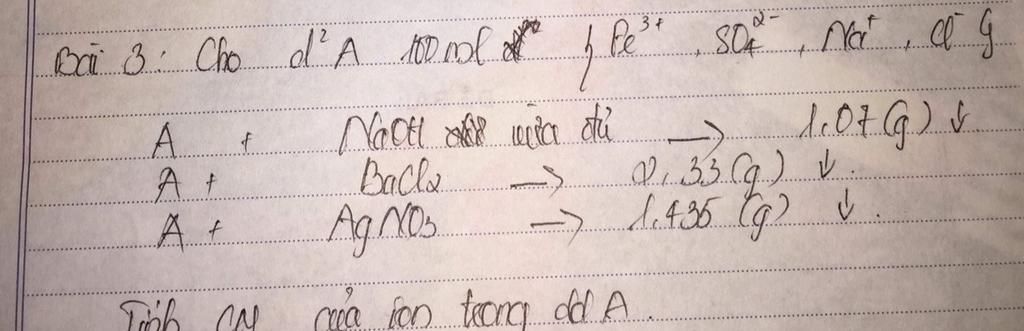 Bài 3: Cho d² A 100 ml { Fe³⁺, SO₄²⁻, Na⁺, Cl⁻ }
A + NaOH vừa đủ → 1.07 (g) ↓.
A + BaCl₂ → 2,33 (g) ↓.
A + AgNO₃ → 1.435 (g) ↓.
Tính CM của ion trong dd A.